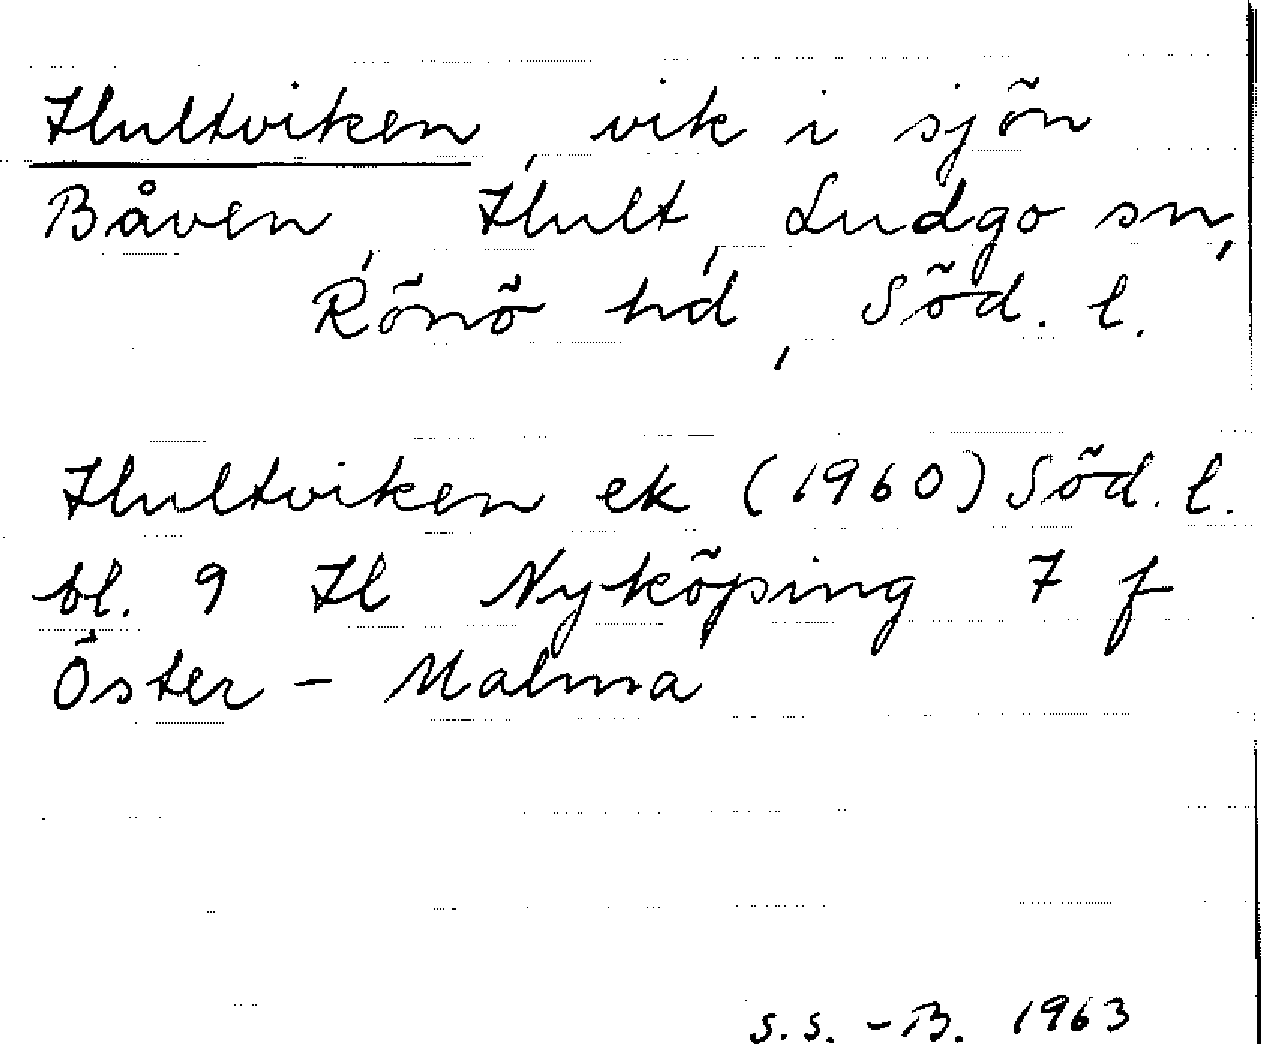 Hultviken, vik i sjön
Båven, Hult, Ludgo sn,
Rönö hd, Söd. l.
Hultviken ek (1960) Söd. l.
bl. 9 H Nyköping 7 f
Öster-Malma
S.S.-B. 1963